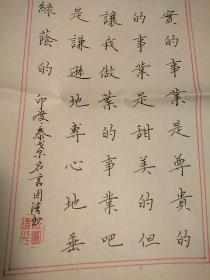 實的事業是尊貴的
的事業是甜美的但
讓我做葉的事業吧
是謙遜地專心地垂
綠蔭的
印度泰戈尔名言